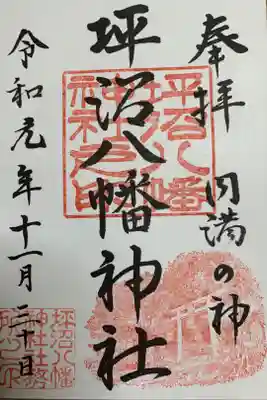 奉拝
円満の神
坪沼八幡神社
令和元年十一月三十日
坪沼八幡
神社之印
坪沼八幡
神社社務
所之印